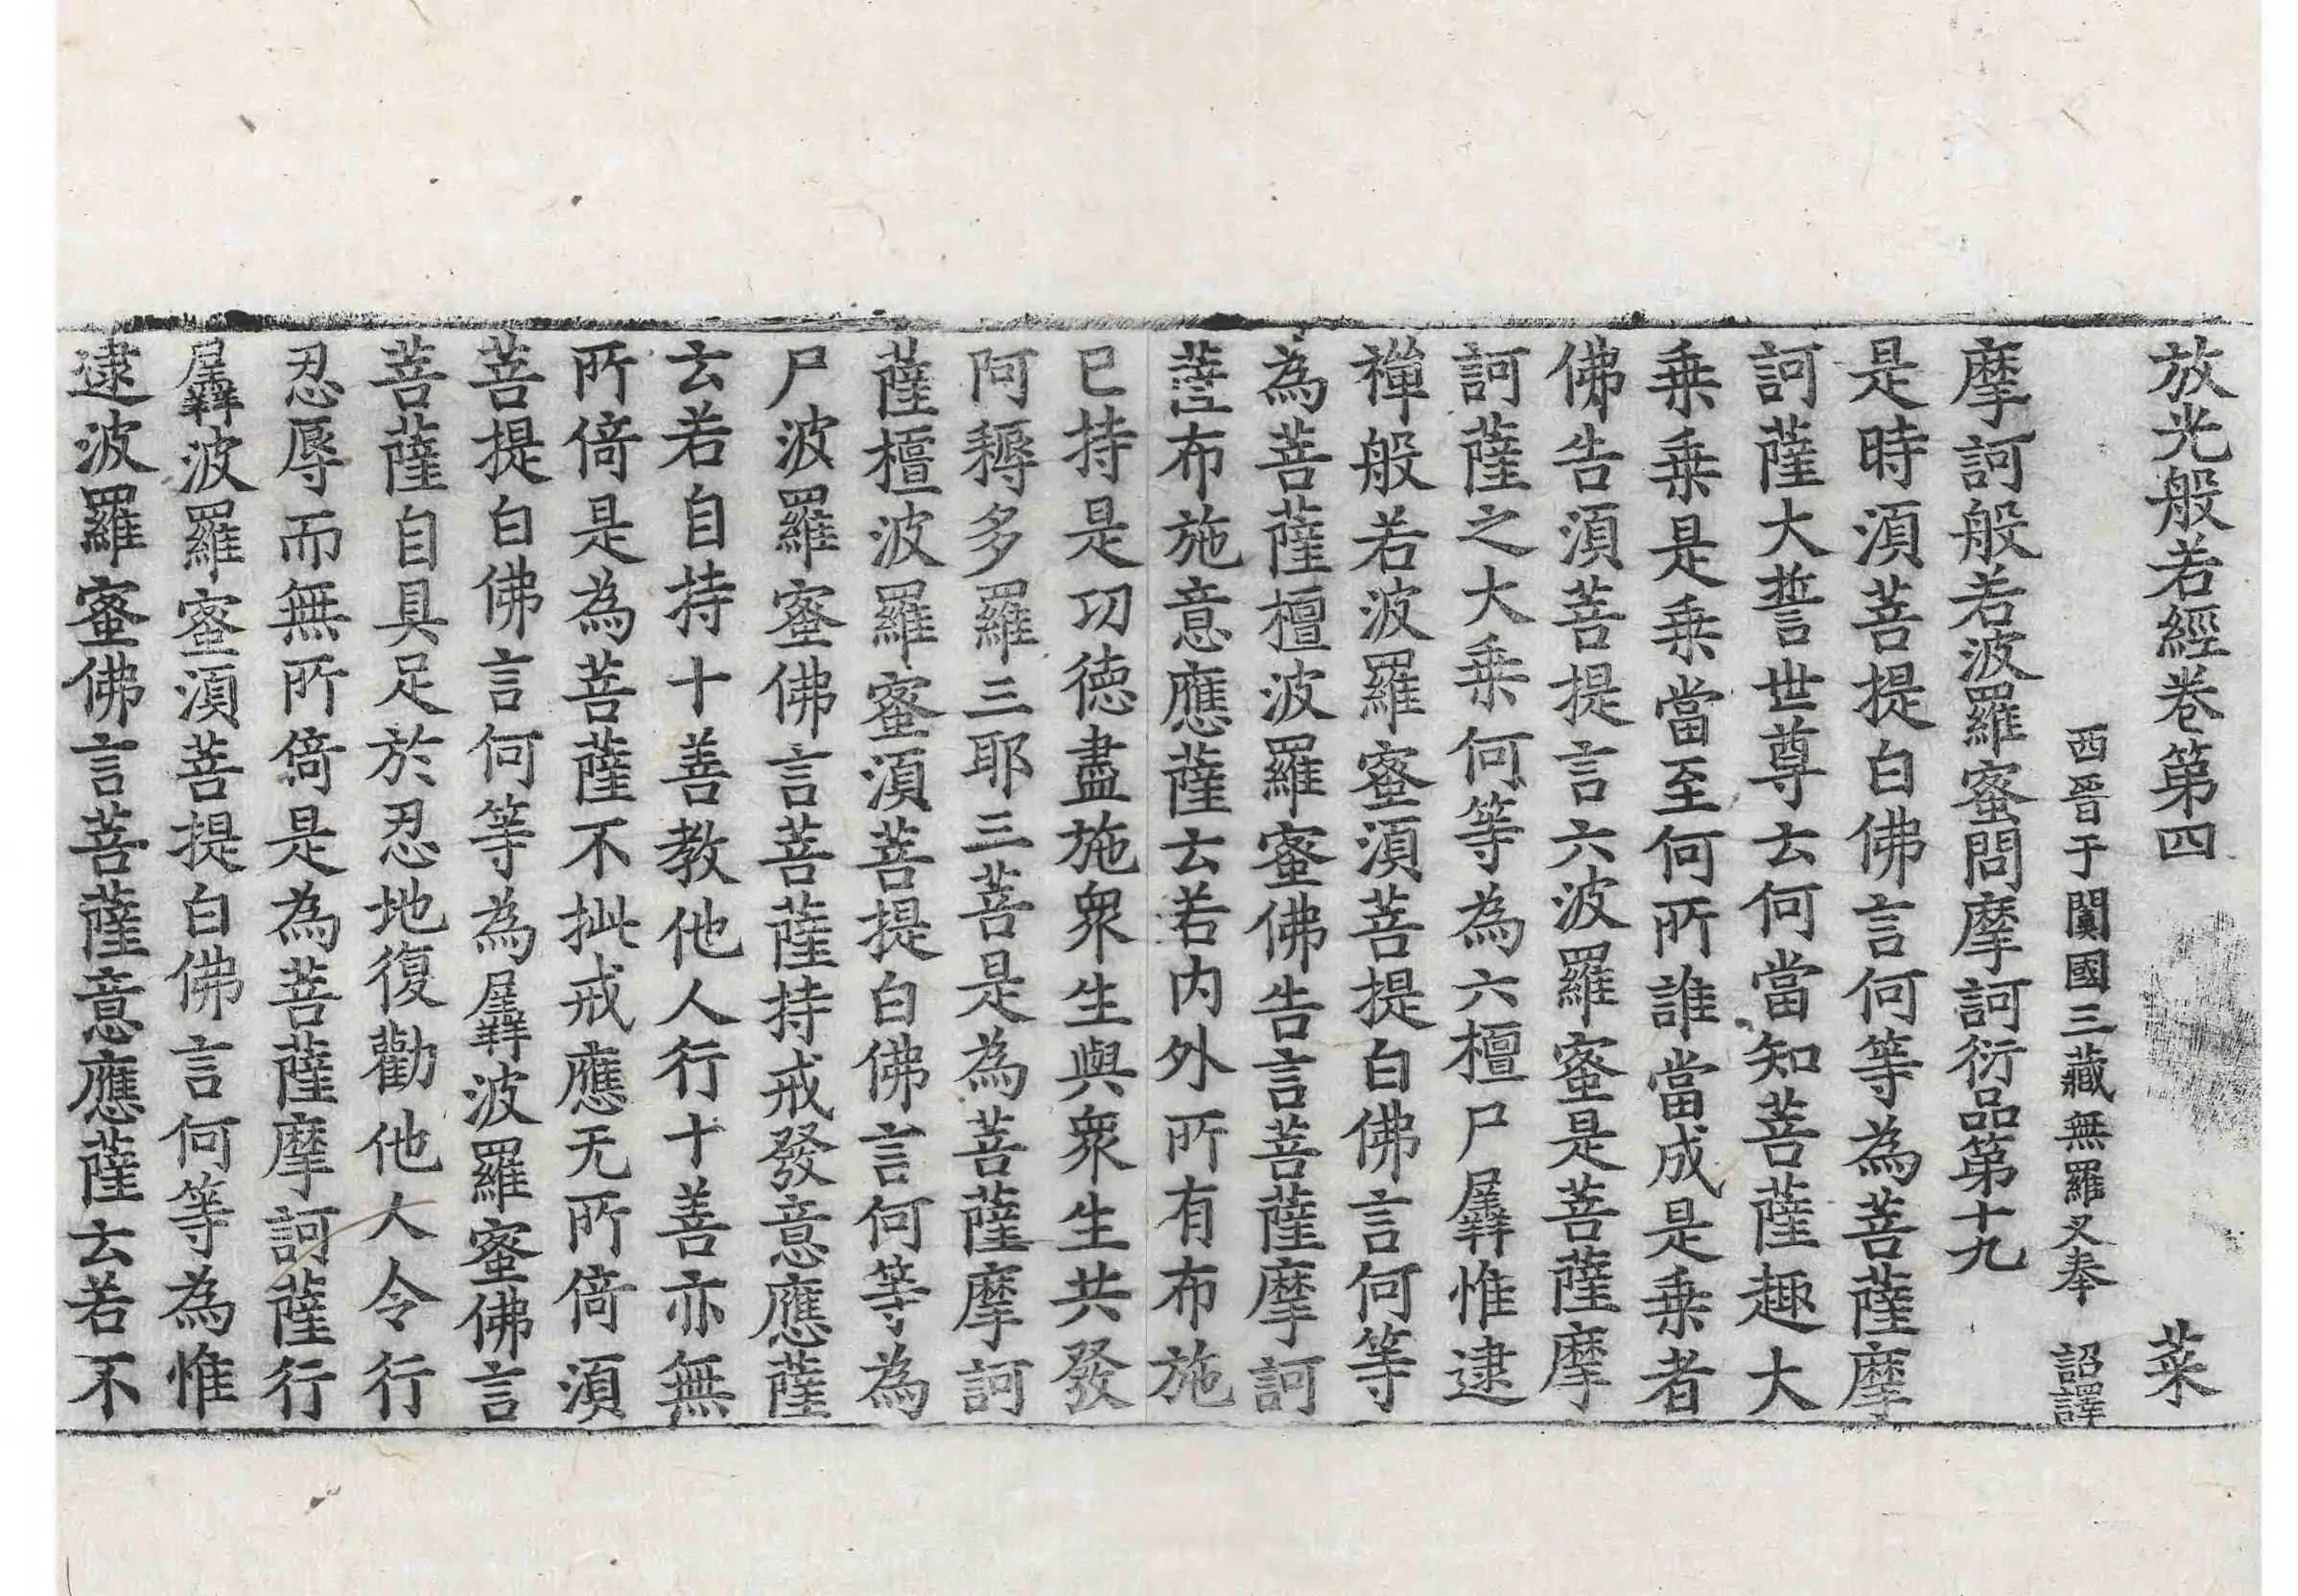 放光般若經卷第四 菜
西晉于闐國三藏無羅叉奉 詔譯
摩訶般若波羅蜜問摩訶衍品第十九
是時須菩提白佛言何等為菩薩摩
訶薩大誓世尊云何當知菩薩趣大
乗乗是乗當至何所誰當成是乗者
佛告須菩提言六波羅蜜是菩薩摩
訶薩之大乗何等為六檀尸羼惟逮
禪般若波羅蜜須菩提白佛言何等
為菩薩檀波羅蜜佛告言菩薩摩訶
薩布施意應薩云若内外所有布施
已持是功德盡施衆生與衆生共發
阿耨多羅三耶三菩是為菩薩摩訶
薩檀波羅蜜須菩提白佛言何等為
尸波羅蜜佛言菩薩持戒發意應薩
云若自持十善教他人行十善亦無
所倚是為菩薩不挑戒應无所倚須
菩提白佛言何等為羼波羅蜜佛言
菩薩自具足於忍地復勸他人令行
忍辱而無所倚是為菩薩摩訶薩行
羼波羅蜜須菩提白佛言何等為惟
逮波羅蜜佛言菩薩意應薩云若不